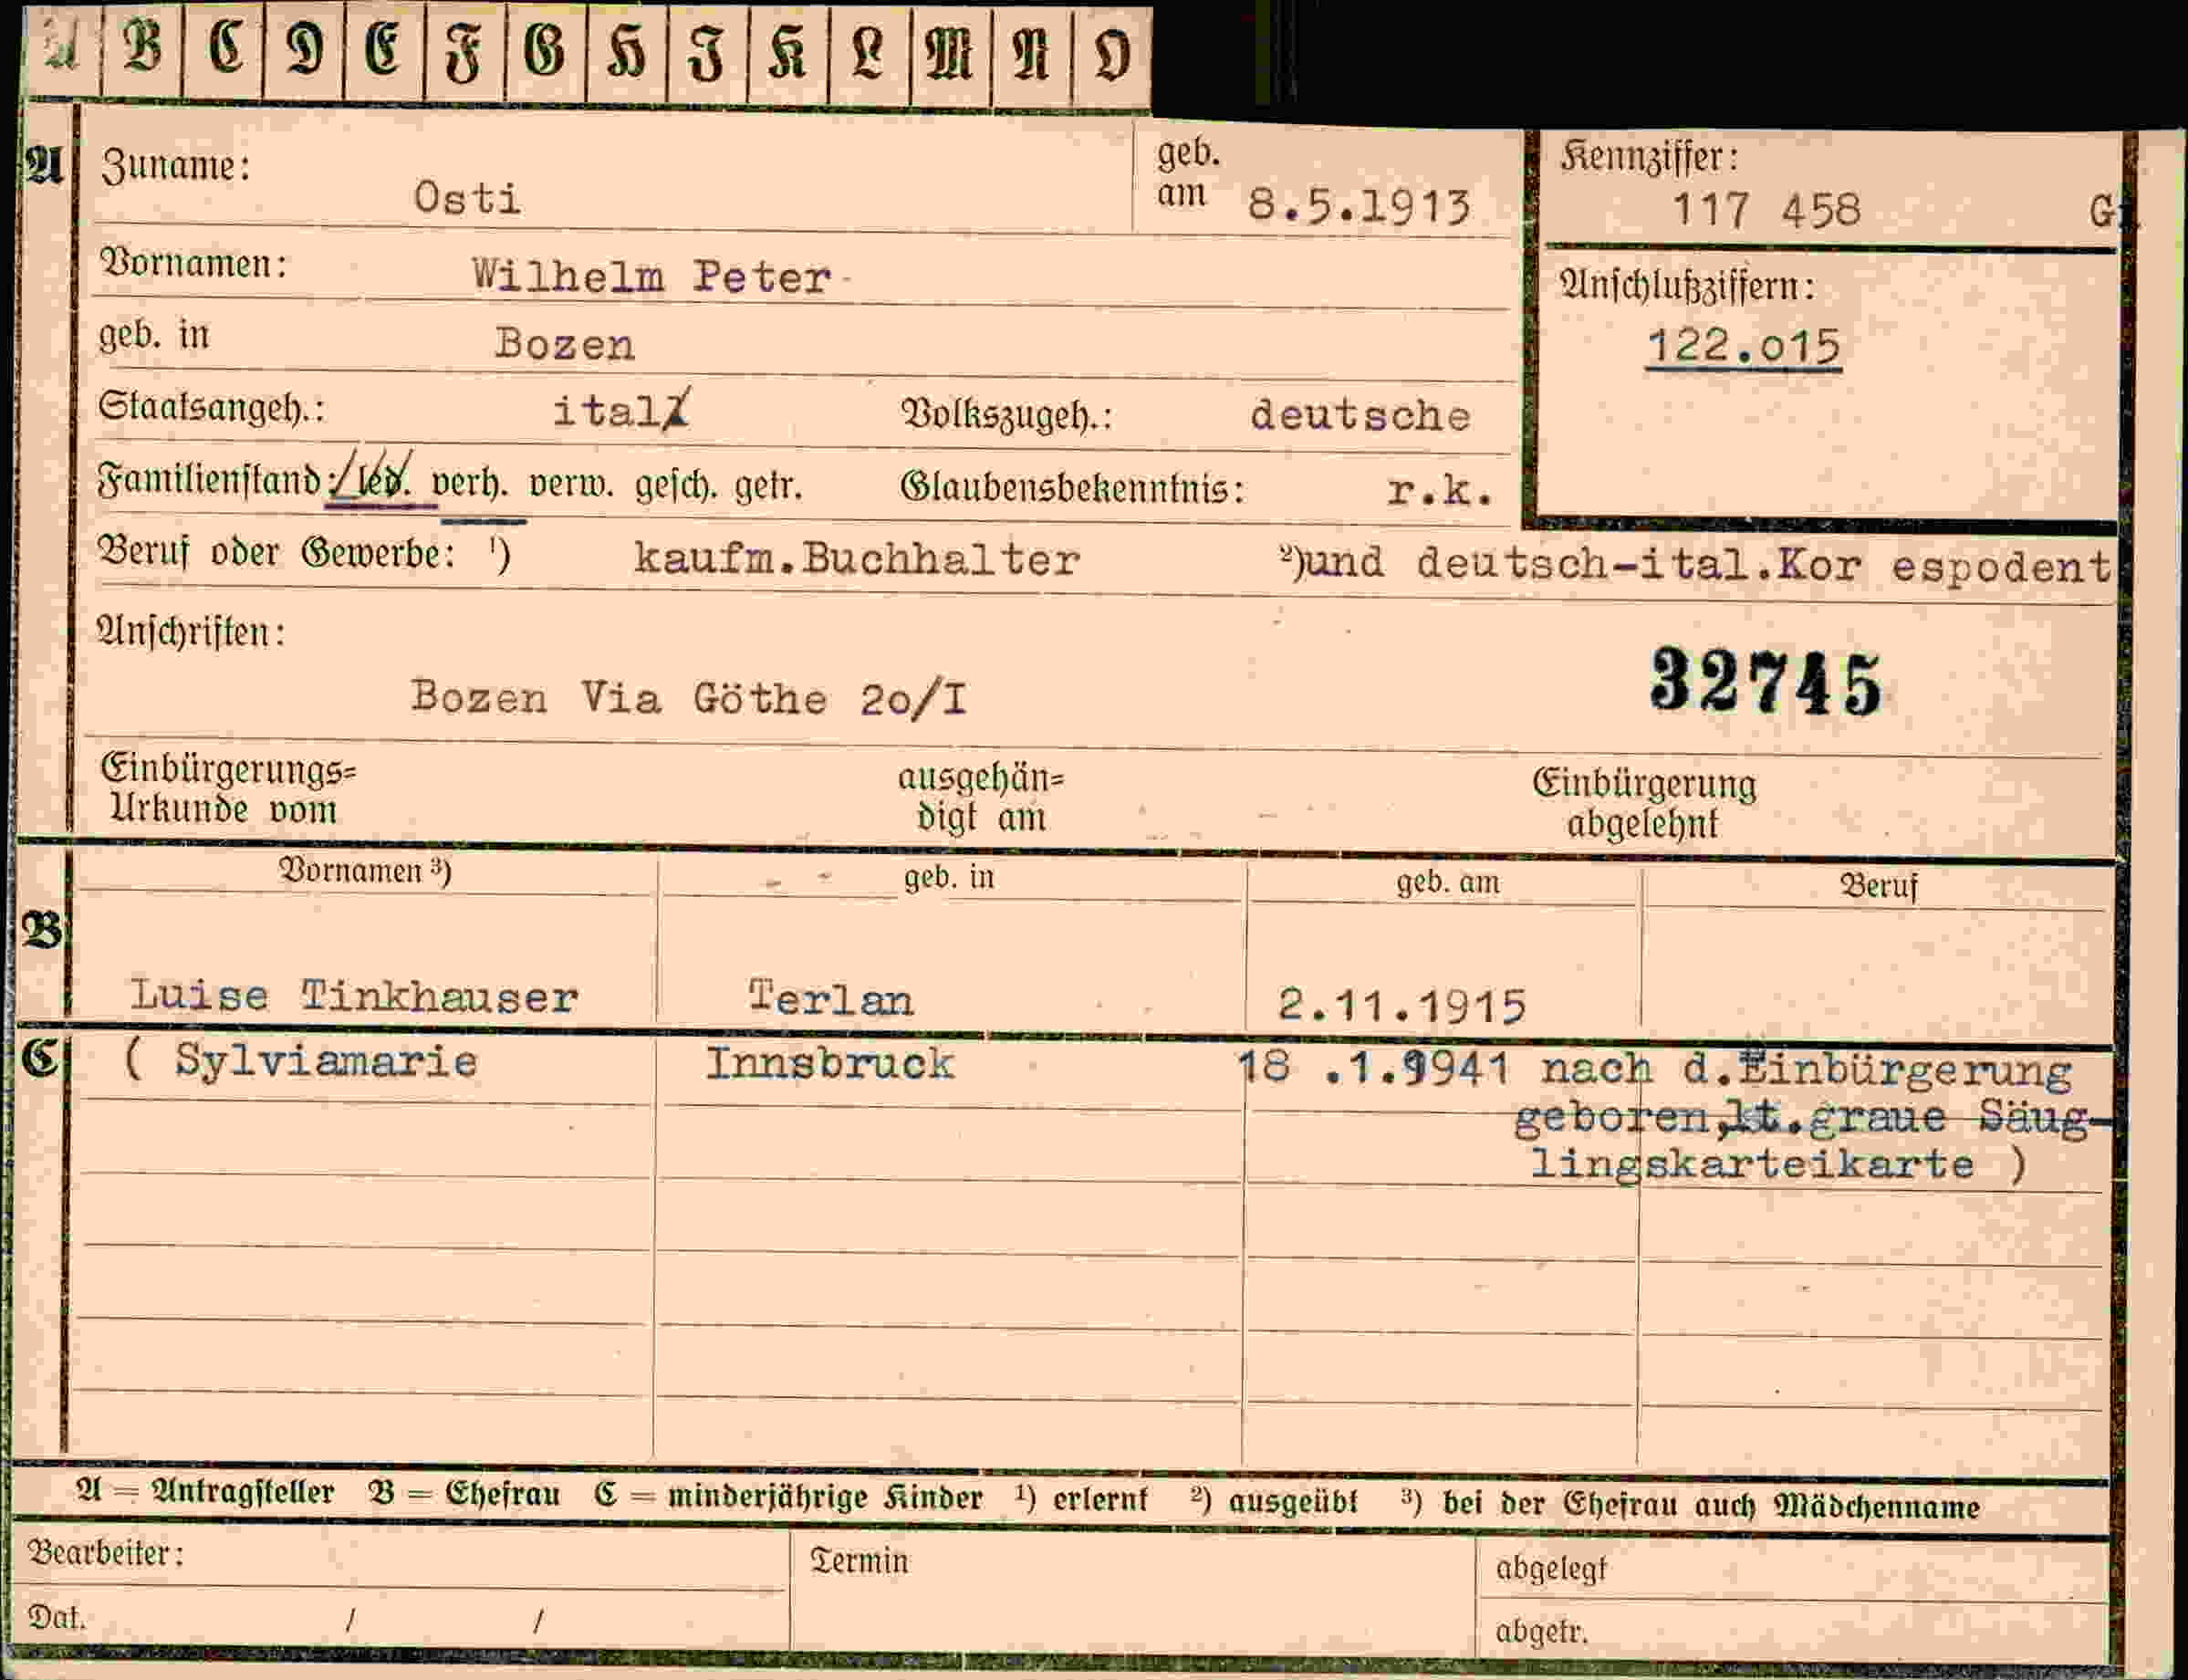 A B C D E F G H I K L M N O
A Zuname: Osti geb. am 8.5.1913 Kennziffer: 117 458 G.
Vornamen: Wilhelm Peter Anschlußziffern:
geb. in Bozen 122.o15
Staatsangeh.: ital Volkszugeh.: deutsche
Familienstand: led. verh. verw. gesch. getr. Glaubensbekenntnis: r.k.
Beruf oder Gewerbe: 1) kaufm.Buchhalter 2)und deutsch-ital.Kor espodent
Anschriften:
Bozen Via Göthe 2o/I 32745
Einbürgerungs= ausgehän= Einbürgerung
Urkunde vom digt am abgelehnt
Vornamen 3) geb. in geb. am Beruf
B
Luise Tinkhauser Terlan 2.11.1915
C ( Sylviamarie Innsbruck 18 .1.1941 nach d.Einbürgerung
geboren,lt.graue Säug-
lingskarteikarte )
A = Antragsteller B = Ehefrau C = minderjährige Kinder 1) erlernt 2) ausgeübt 3) bei der Ehefrau auch Mädchenname
Bearbeiter: Termin abgelegt
Dat. / / abgetr.